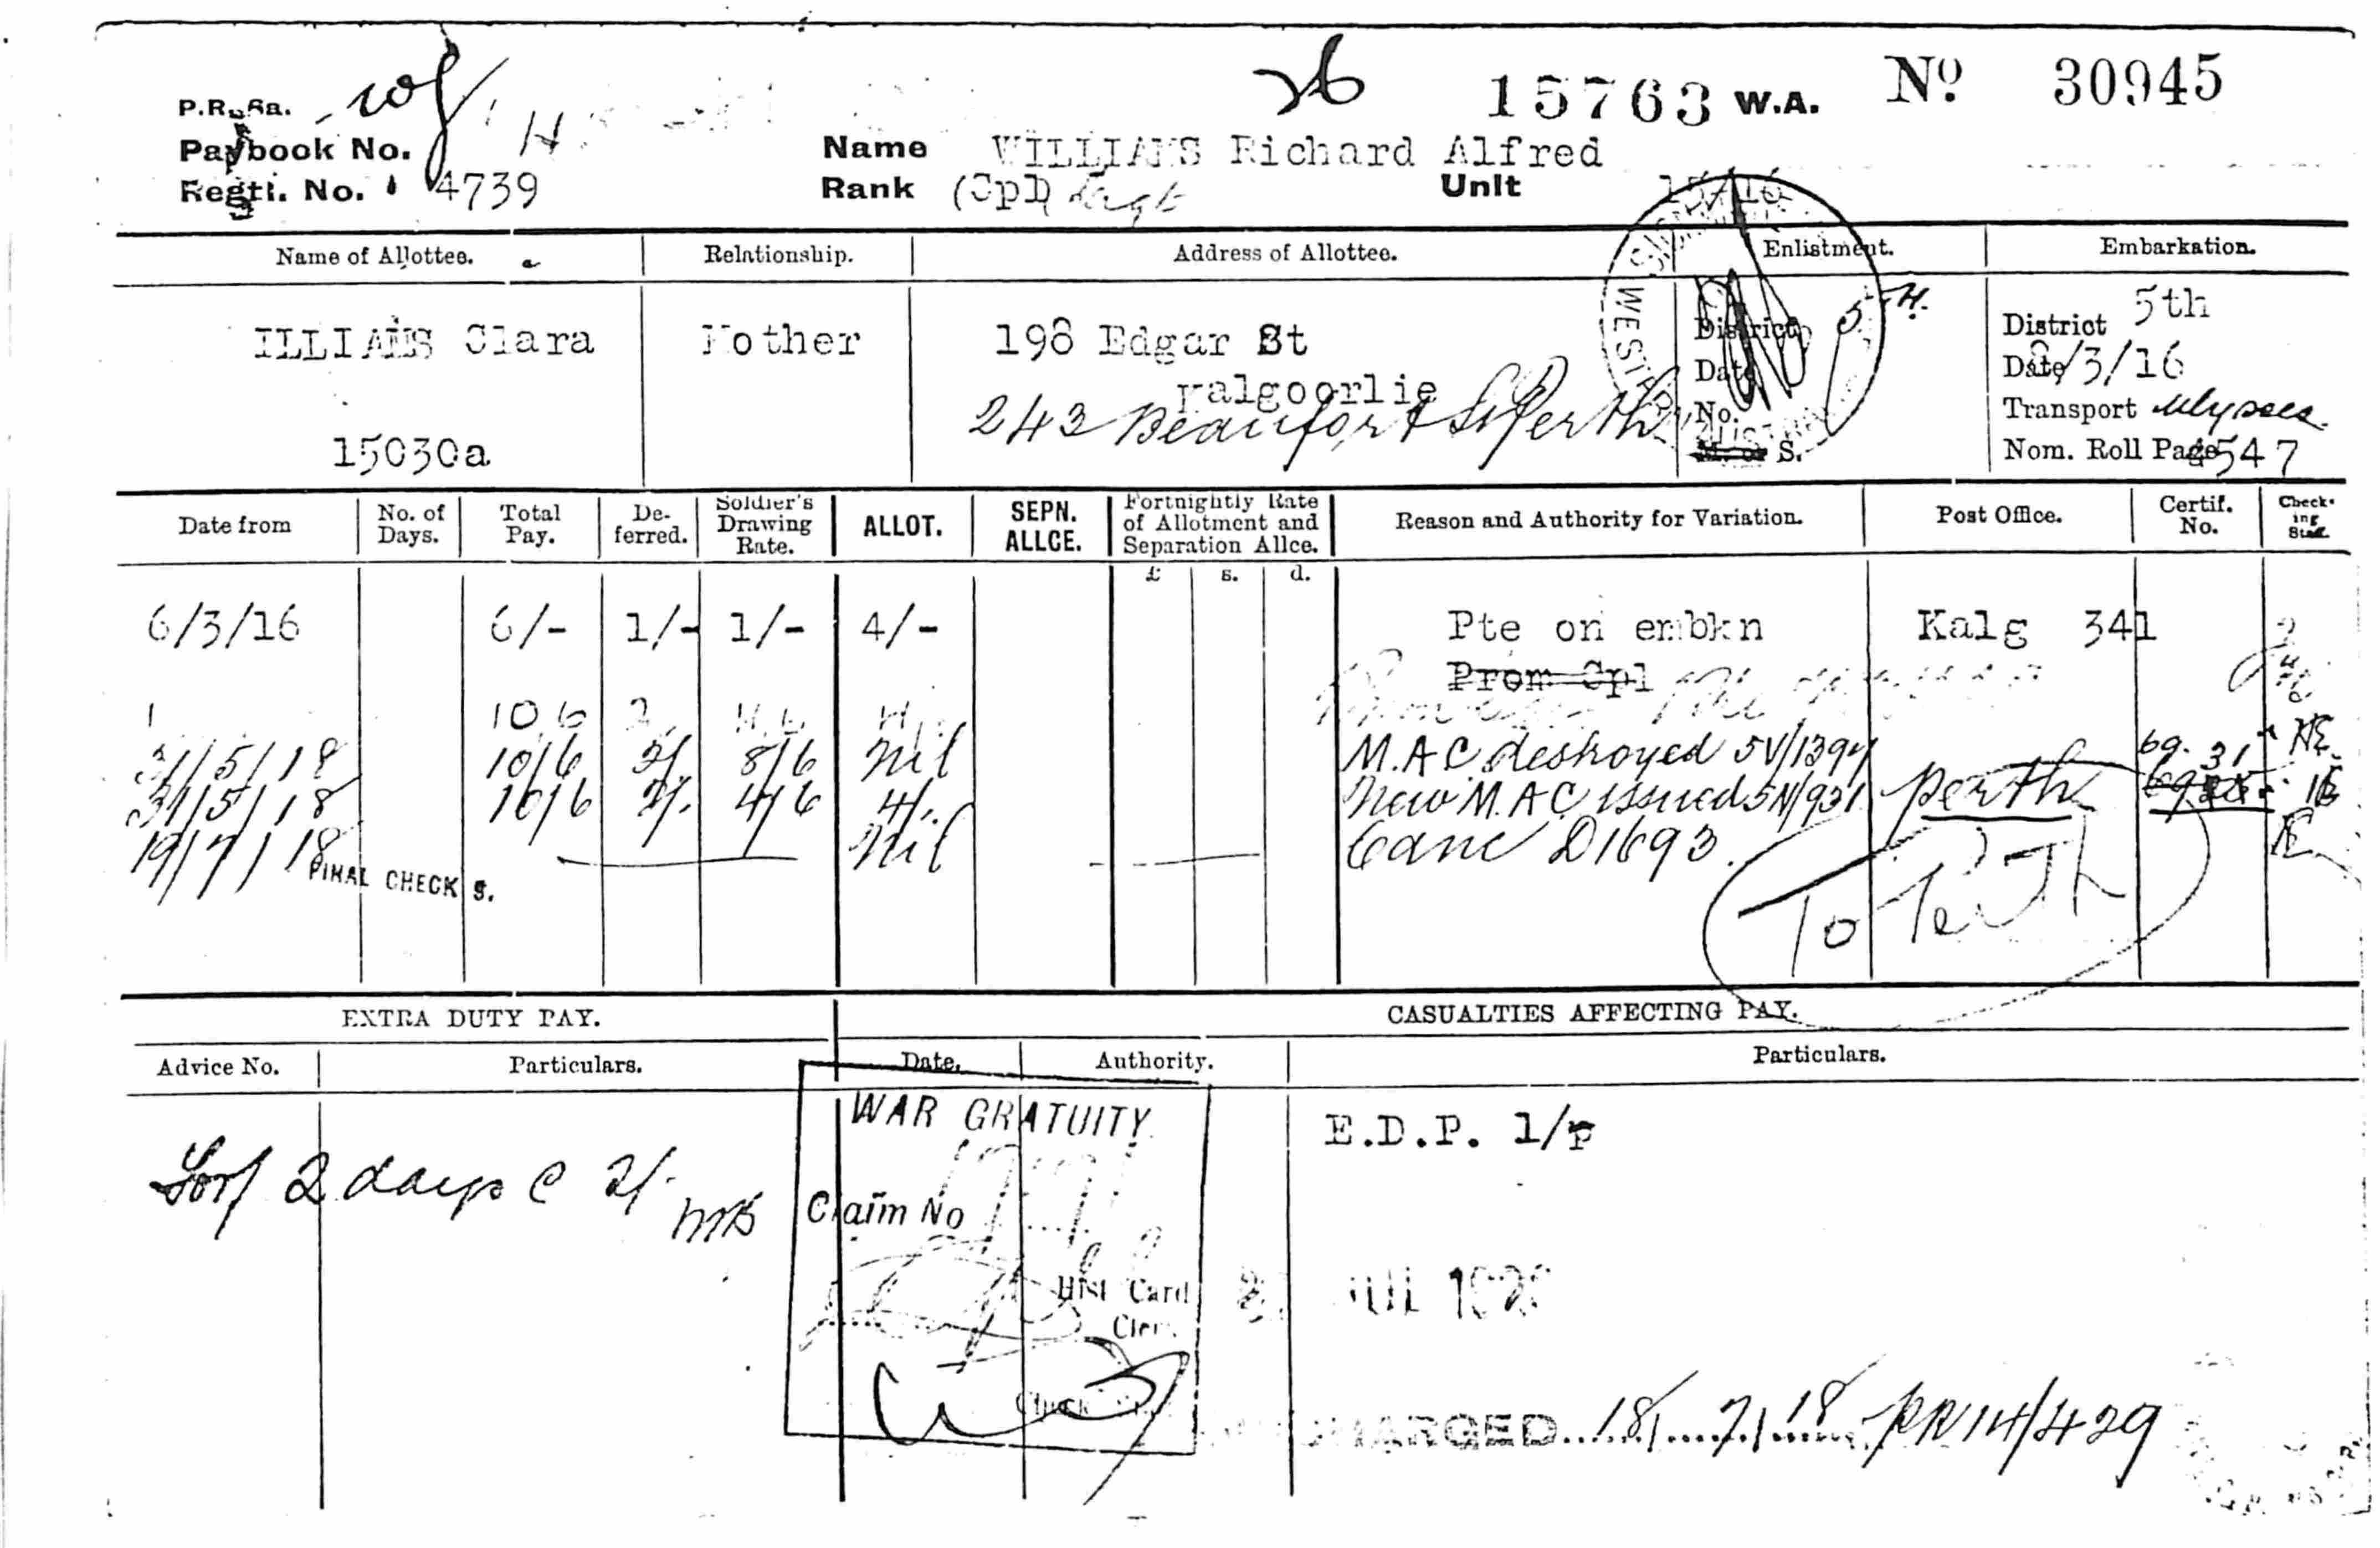 26 15763 W.A. Nº 30945
P.R. 8a.
Paybook No. Name WILLIAMS Richard Alfred
Regtl. No. 4739 Rank (Cpl) Sergt Unit 15/16
Name of Allottee. Relationship. Address of Allottee. Enlistment. Embarkation.
ILLIAMS Clara Mother 198 Edgar St District 5 District 5th
Kalgoorlie Date Date 8/3/16
243 Beaufort St Perth No. Transport Ulysses
15030a M. or S. Nom. Roll Page 547
Date from No. of Days. Total Pay. De-ferred. Soldier's Drawing Rate. ALLOT. SEPN. ALLCE. Fortnightly Rate of Allotment and Separation Allce. Reason and Authority for Variation. Post Office. Certif. No. Check-ing Staff.
£ s. d.
6/3/16 6/- 1/- 1/- 4/- Pte on embkn Kalg 341
Prom Cpl
10/6 2/
31/5/18 10/6 2/ 8/6 Nil M.A.C destroyed 5V/1394 69. 31
31/5/18 10/6 2/. 4/6 4/. New M.A.C issued 5N/931 Perth
19/7/18 Nil Canc D1693
FINAL CHECK S. To Perth
EXTRA DUTY PAY. CASUALTIES AFFECTING PAY.
Advice No. Particulars. Date. Authority. Particulars.
WAR GRATUITY E.D.P. 1/-
Forf 2 days @ 2/-
Claim No
Hist Card JUL 192
Clerk
Check
CHARGED 18/7/18 PR 14/429